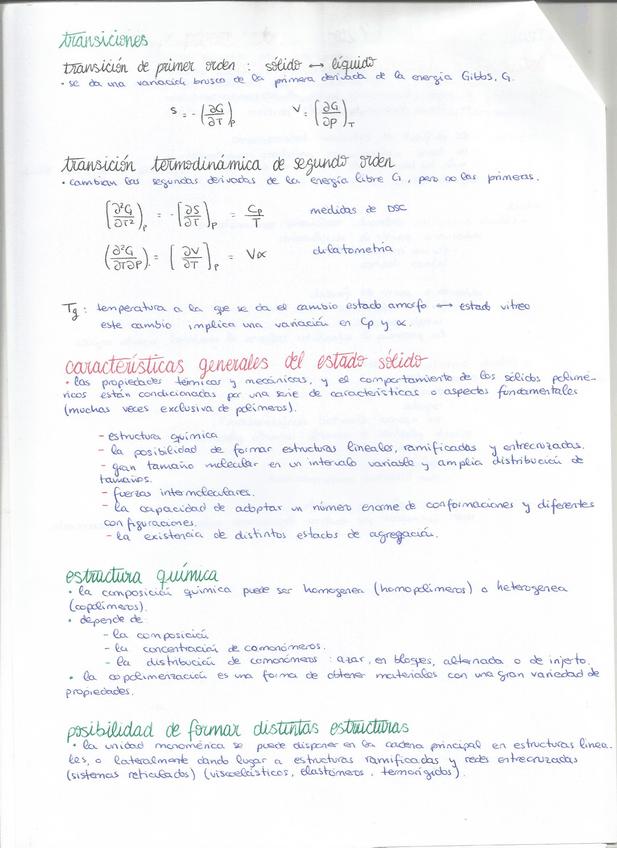 transiciones
transición de primer orden : sólido ↔ líquido
• se da una variación brusca de la primera derivada de la energía Gibbs, G.
S = - (∂G/∂T)p   V = [∂G/∂P]T
transición termodinámica de segundo orden
• cambian las segundas derivadas de la energía libre G, pero no las primeras.
[∂²G/∂T²]p = -[∂S/∂T]p = Cp/T   medidas de DSC
(∂²G/∂T∂P) = [∂V/∂T]p = Vα   dilatometría
Tg : temperatura a la que se da el cambio estado amorfo ↔ estado vítreo
este cambio implica una variación en Cp y α.
características generales del estado sólido
• las propiedades térmicas y mecánicas, y el comportamiento de los sólidos polimé-
ricos están condicionadas por una serie de características o aspectos fundamentales
(muchas veces exclusiva de polímeros).
- estructura química
- la posibilidad de formar estructuras lineales, ramificadas y entrecruzadas.
- gran tamaño molecular en un intervalo variable y amplia distribución de
tamaños.
- fuerzas intermoleculares.
- la capacidad de adoptar un número enorme de conformaciones y diferentes
configuraciones.
- la existencia de distintos estados de agregación.
estructura química
• la composición química puede ser homogenea (homopolímeros) o heterogenea
(copolímeros).
• depende de:
- la composición
- la concentración de comonómeros.
- la distribución de comonómeros : azar, en bloques, alternada o de injerto.
• la copolimerización es una forma de obtener materiales con una gran variedad de
propiedades.
posibilidad de formar distintas estructuras
• la unidad monomérica se puede disponer en la cadena principal en estructuras linea-
les, o lateralmente dando lugar a estructuras ramificadas y redes entrecruzadas
(sistemas reticulados) (viscoelásticos, elastómeros, termorígidos).